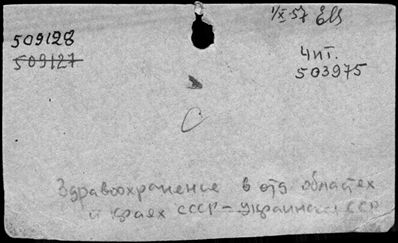 1/X 57
509128
509127
Чит.
503975
С
Здравоохранение в отд областех
и краех СССР - Украинск ССР